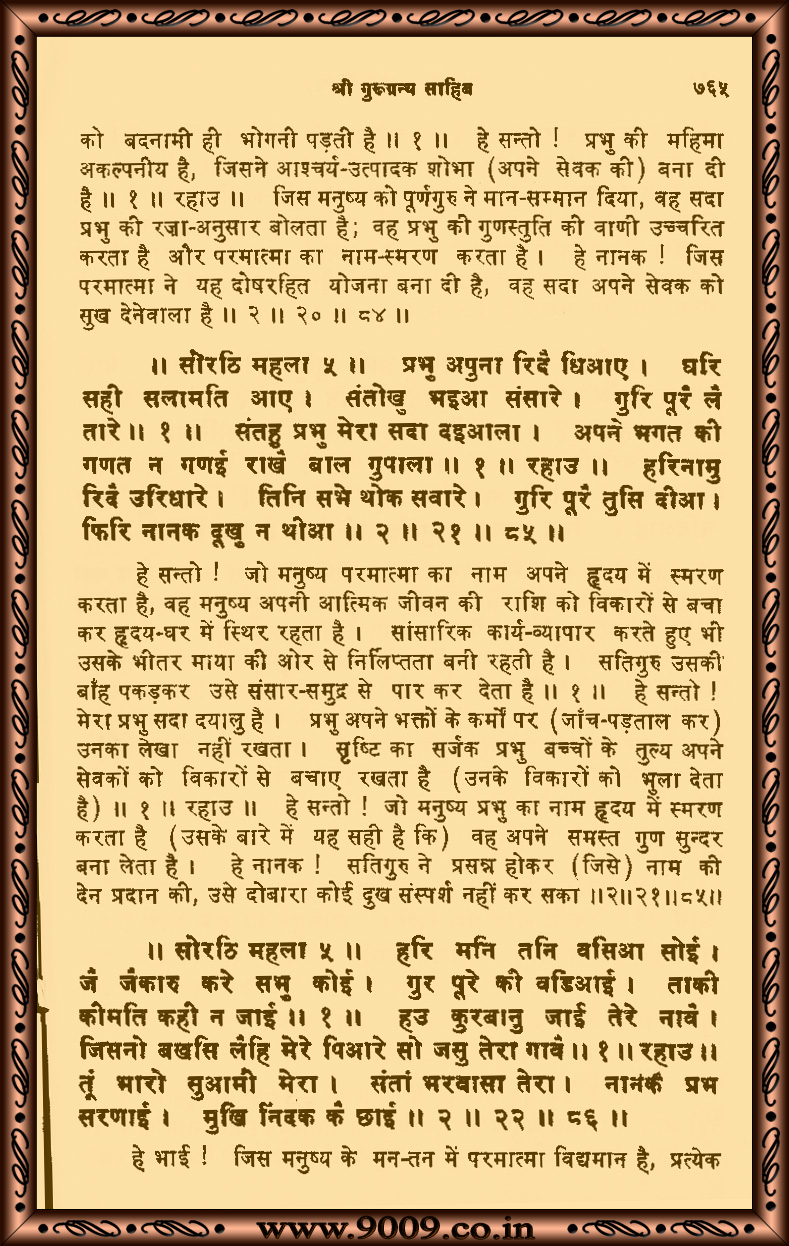 श्री गुरूग्रन्थ साहिब ७६५
को बदनामी ही भोगनी पड़ती है ॥ १ ॥ हे सन्तो ! प्रभु की महिमा
अकल्पनीय है, जिसने आश्चर्य-उत्पादक शोभा (अपने सेवक की) बना दी
है ॥ १ ॥ रहाउ ॥ जिस मनुष्य को पूर्णगुरु ने मान-सम्मान दिया, वह सदा
प्रभु की रज़ा-अनुसार बोलता है; वह प्रभु की गुणस्तुति की वाणी उच्चरित
करता है और परमात्मा का नाम-स्मरण करता है । हे नानक ! जिस
परमात्मा ने यह दोषरहित योजना बना दी है, वह सदा अपने सेवक को
सुख देनेवाला है ॥ २ ॥ २० ॥ ८४ ॥
॥ सोरठि महला ५ ॥ प्रभु अपुना रिदै धिआए । घरि
सही सलामति आए । संतोखु भइआ संसारे । गुरि पूरै लै
तारे ॥ १ ॥ संतहु प्रभु मेरा सदा दइआला । अपने भगत की
गणत न गणई राखै बाल गुपाला ॥ १ ॥ रहाउ ॥ हरिनामु
रिदै उरिधारे । तिनि सभे थोक सवारे । गुरि पूरै तुसि दीआ ।
फिरि नानक दूखु न थीआ ॥ २ ॥ २१ ॥ ८५ ॥
हे सन्तो ! जो मनुष्य परमात्मा का नाम अपने हृदय में स्मरण
करता है, वह मनुष्य अपनी आत्मिक जीवन की राशि को विकारों से बचा
कर हृदय-घर में स्थिर रहता है । सांसारिक कार्य-व्यापार करते हुए भी
उसके भीतर माया की ओर से निर्लिप्तता बनी रहती है । सतिगुरु उसकी
बाँह पकड़कर उसे संसार-समुद्र से पार कर देता है ॥ १ ॥ हे सन्तो !
मेरा प्रभु सदा दयालु है । प्रभु अपने भक्तों के कर्मों पर (जाँच-पड़ताल कर)
उनका लेखा नहीं रखता । सृष्टि का सर्जक प्रभु बच्चों के तुल्य अपने
सेवकों को विकारों से बचाए रखता है (उनके विकारों को भुला देता
है) ॥ १ ॥ रहाउ ॥ हे सन्तो ! जो मनुष्य प्रभु का नाम हृदय में स्मरण
करता है (उसके बारे में यह सही है कि) वह अपने समस्त गुण सुन्दर
बना लेता है । हे नानक ! सतिगुरु ने प्रसन्न होकर (जिसे) नाम की
देन प्रदान की, उसे दोबारा कोई दुख संस्पर्श नहीं कर सका ॥२॥२१॥८५॥
॥ सोरठि महला ५ ॥ हरि मनि तनि वसिआ सोई ।
जै जैकारु करे सभु कोई । गुर पूरे की वडिआई । ताकी
कीमति कही न जाई ॥ १ ॥ हउ कुरबानु जाई तेरे नावै ।
जिसनो बखसि लैहि मेरे पिआरे सो जसु तेरा गावै ॥ १ ॥ रहाउ ॥
तूं भारो सुआमी मेरा । संतां भरवासा तेरा । नानक प्रभ
सरणाई । मुखि निंदक कै छाई ॥ २ ॥ २२ ॥ ८६ ॥
हे भाई ! जिस मनुष्य के मन-तन में परमात्मा विद्यमान है, प्रत्येक
www.9009.co.in